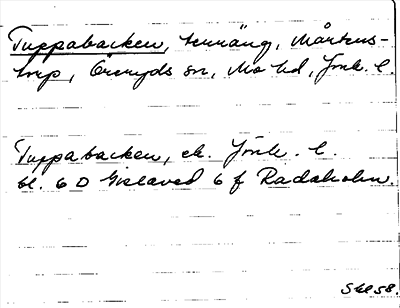 Tuppabäcken, terräng, Mårtens-
torp, Öreryds sn, Mo hd, Jönk. l.
Tuppabäcken, ek. Jönk. l.
bl. 6 D Gislaved 6 f Radaholm.